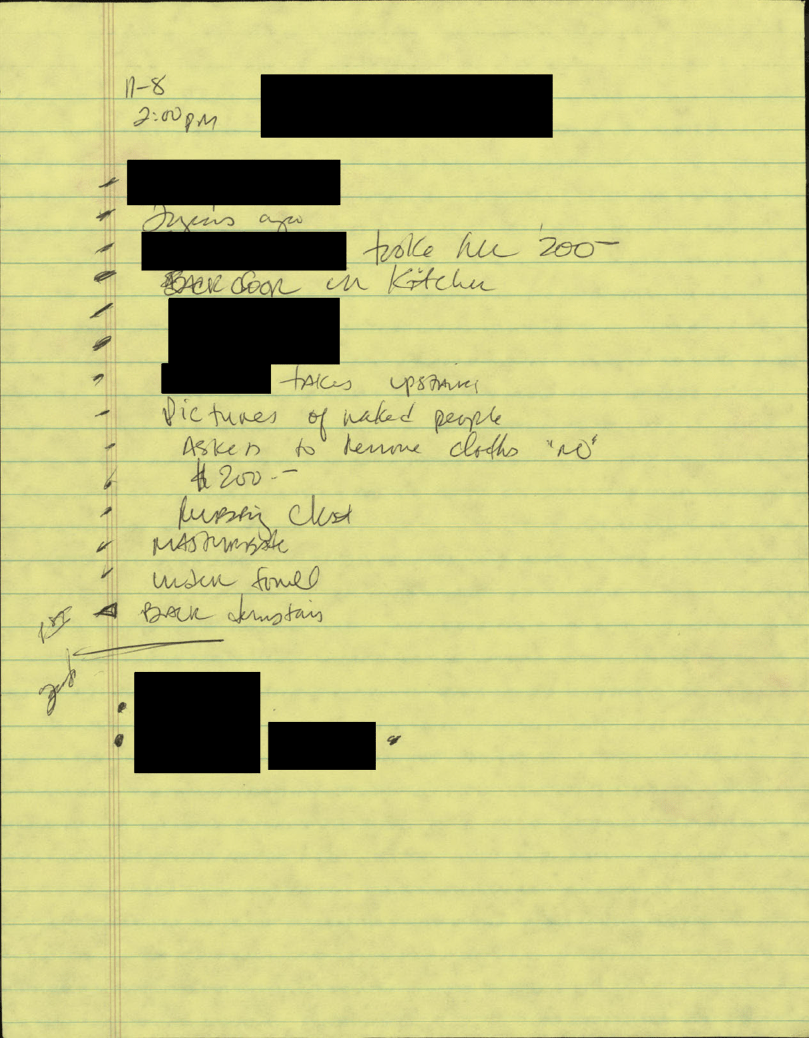 11-8
2:00 PM
years ago
her 200-
BACK door in Kitchen
takes upstairs
Pictures of naked people
Asked to remove cloths "NO"
$200.-
Rubbing chest
MASTURBATE
under towel
1ST BACK downstairs
2nd